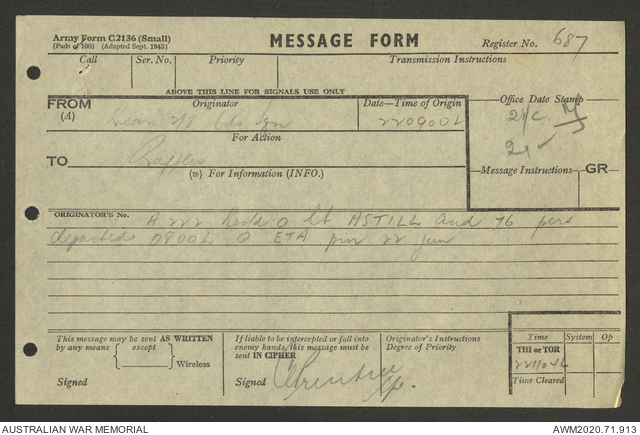 Army Form C2136 (Small)
(Pads of 100) (Adapted Sept. 1943)
MESSAGE FORM
Register No. 687
Call Ser. No. Priority Transmission Instructions
ABOVE THIS LINE FOR SIGNALS USE ONLY
FROM Originator Date—Time of Origin Office Date Stamp
(A) 220900L
For Action
TO Raffles
Message Instructions GR
(w) For Information (INFO.)
ORIGINATOR'S No. A 222 O Lt ASTILL and 76 pers
departed 0800L O ETA pm 22 Jun
This message may be sent AS WRITTEN
by any means except
Wireless
Signed
If liable to be intercepted or fall into
enemy hands, this message must be
sent IN CIPHER
Signed
Originator's Instructions
Degree of Priority
Time System Op
THI or TOR
Time Cleared
AUSTRALIAN WAR MEMORIAL AWM2020.71.913